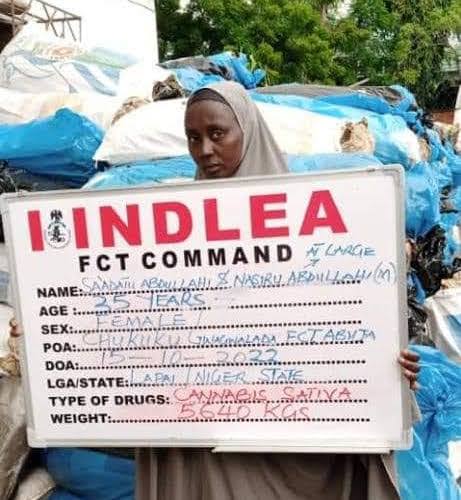 NDLEA
FCT COMMAND AT LARGE
NAME: SAADATU ABDULLAHI & NASIRU ABDULLAHI (M)
AGE : 25 YEARS
SEX: FEMALE /
POA: CHUKUKU GWAGWALADA FCT ABUJA
DOA: 15-10-2022
LGA/STATE: LAPAI / NIGER STATE
TYPE OF DRUGS: CANNABIS SATIVA
WEIGHT: 5640 KGS